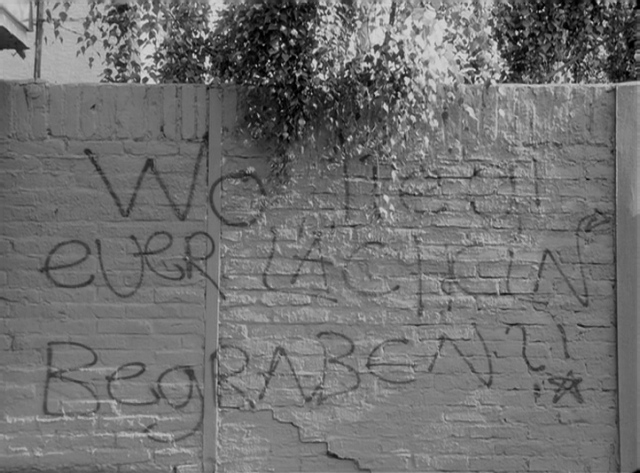 Wo liegt
euER LÄCHELN
BegRABEN?!